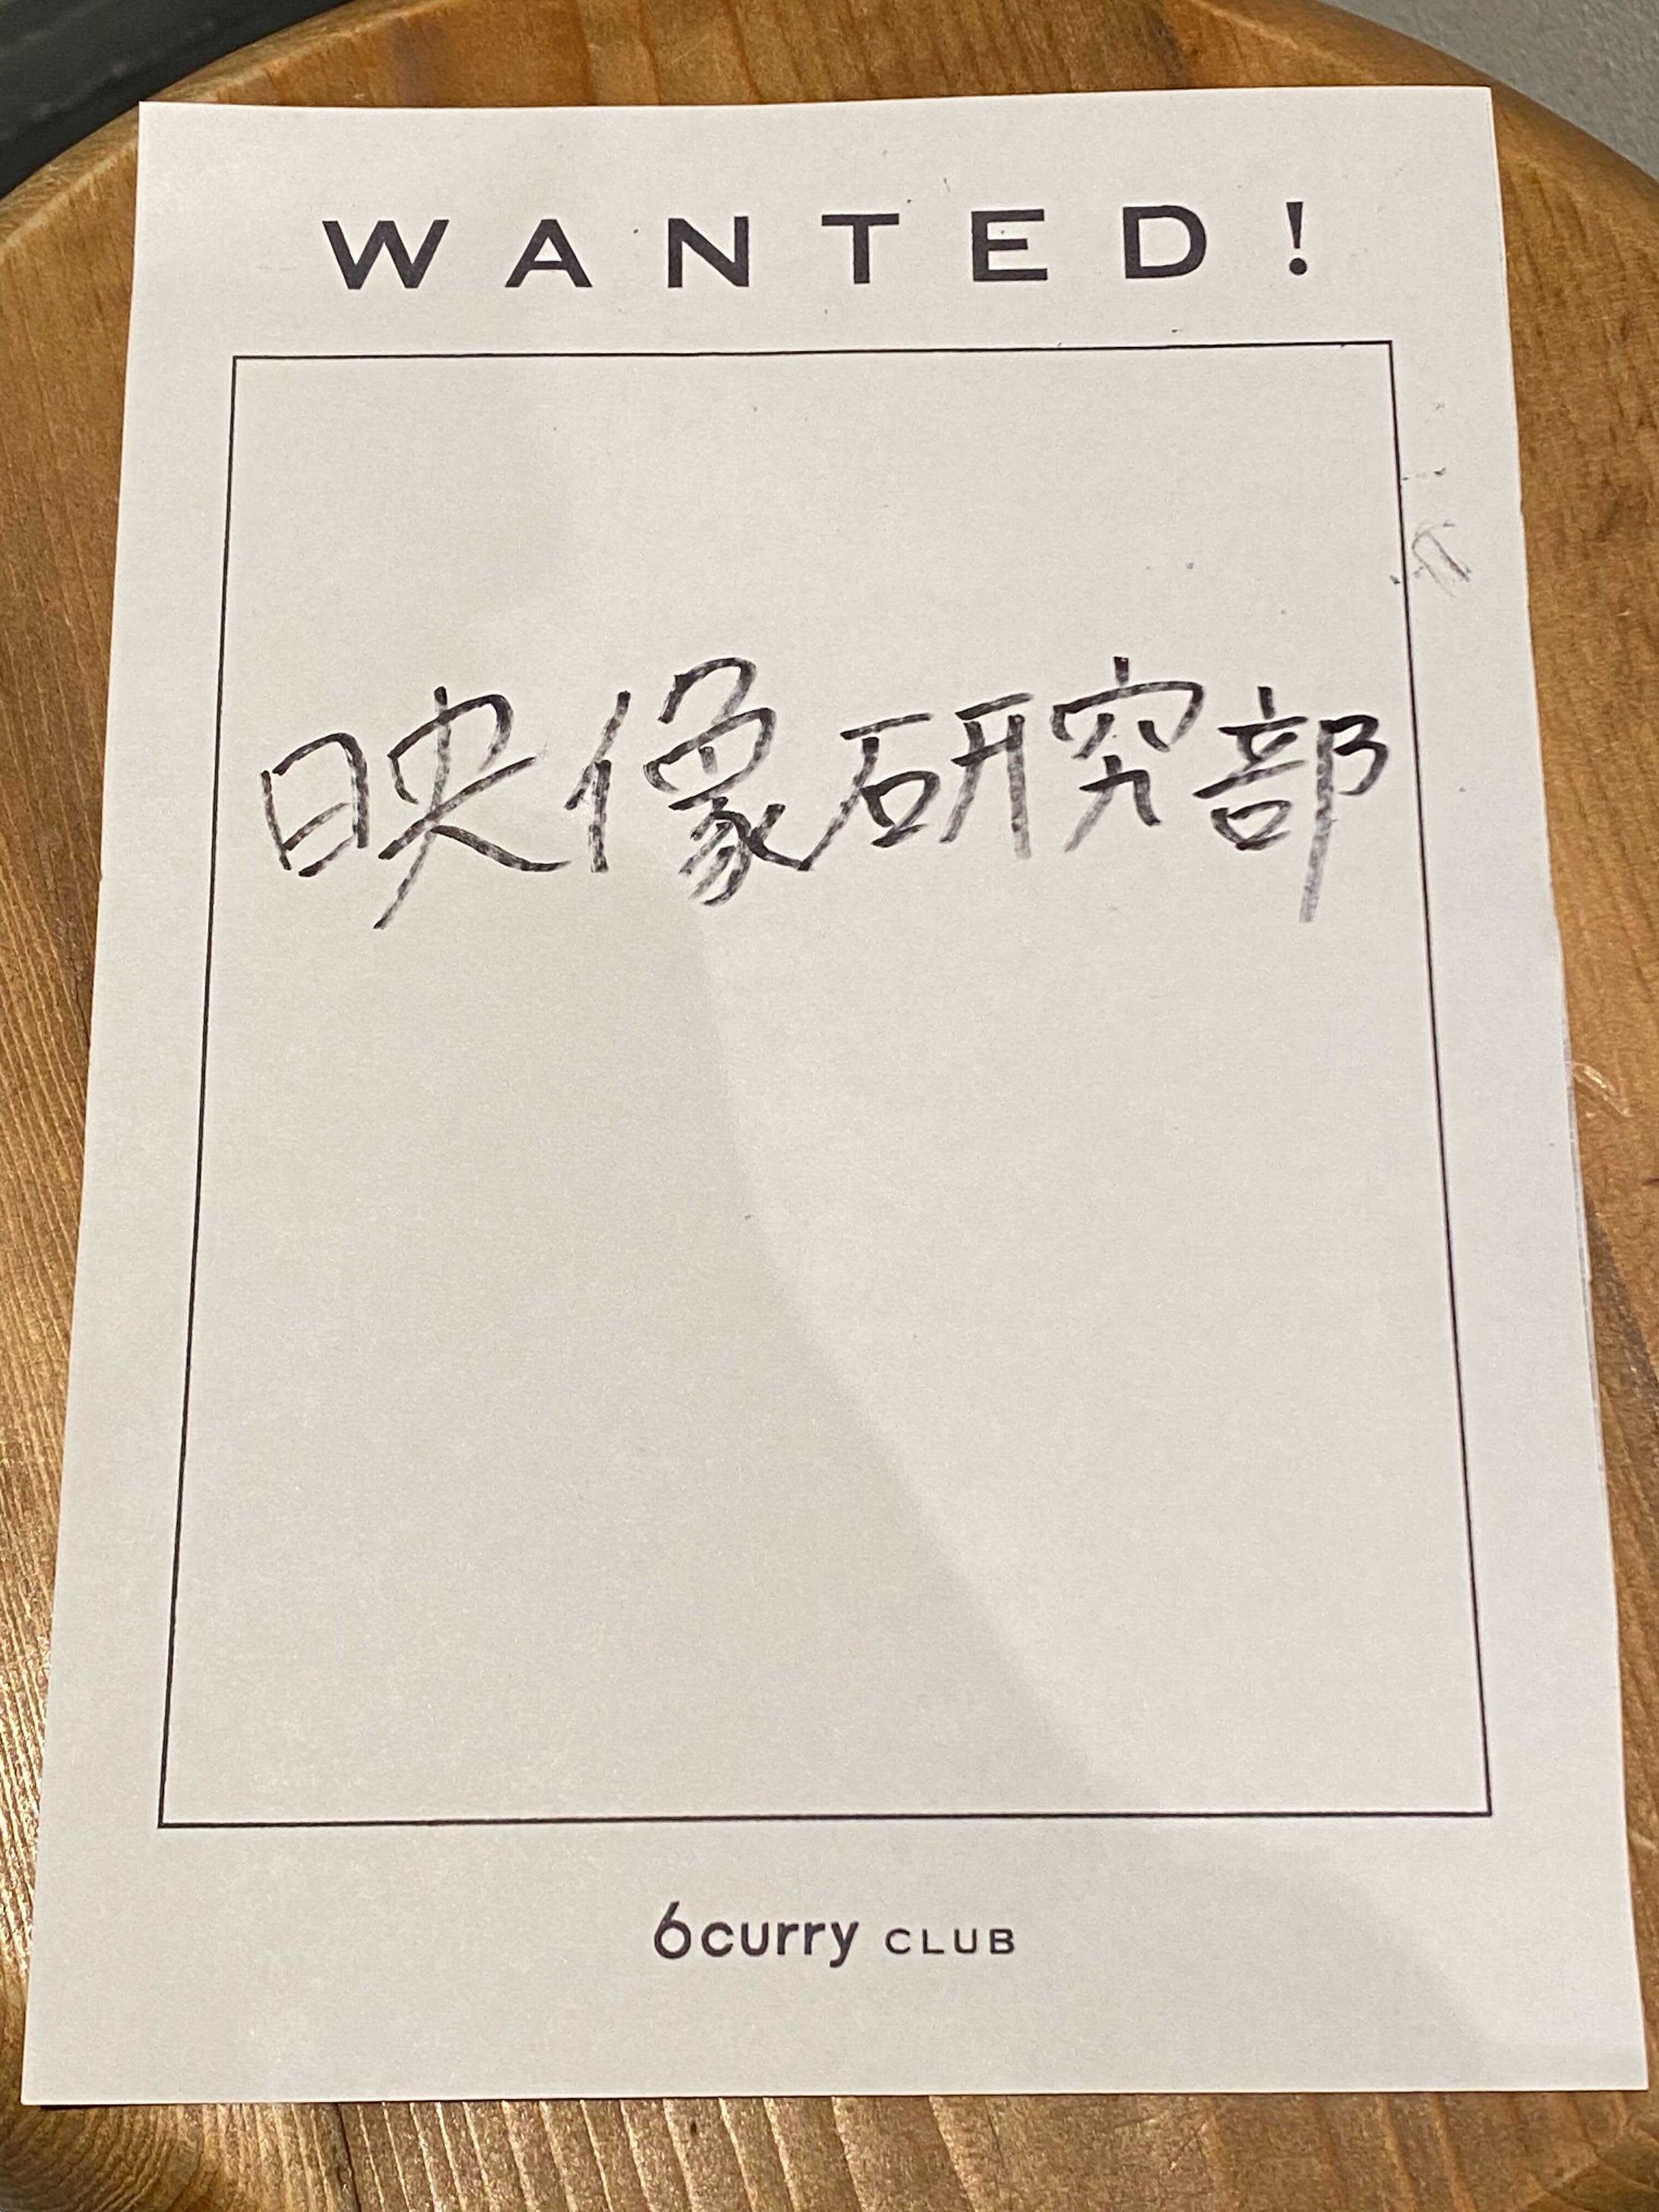 WANTED!
映像研究部
6curry CLUB